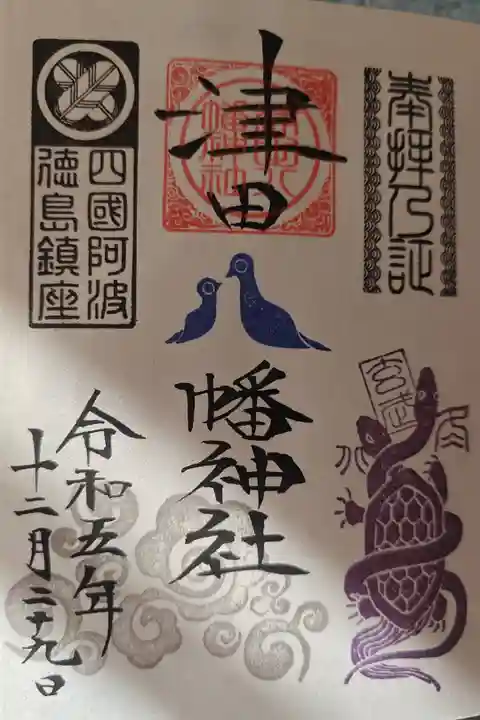 奉拝乃証
玄武
津田
幡神社
四國阿波
徳島鎮座
令和五年
十二月二十九日